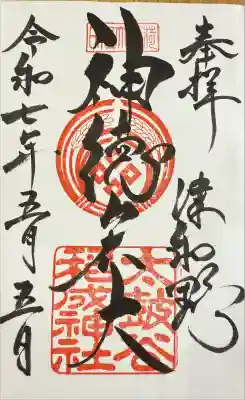 奉拝　津和野
神徳
太皷谷
稲成神社
令和七年五月五日